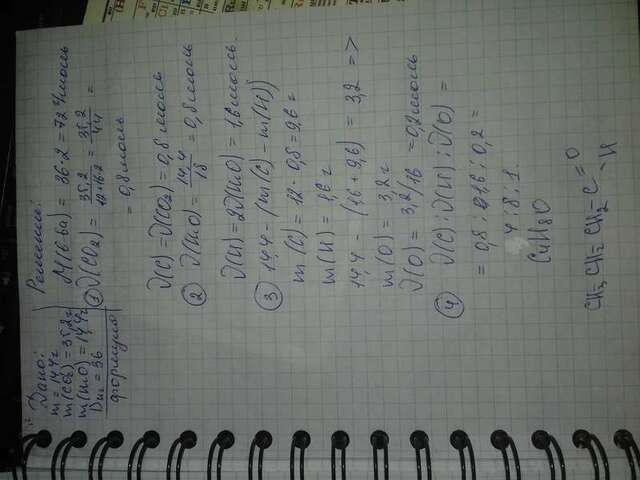 Дано:
m = 14,4г
m(CO₂) = 35,2г
m(H₂O) = 14,4г
D H₂ = 36
формула
Решение:
M(в-ва) = 36·2 = 72 г/моль
① ν(CO₂) = 35,2/12+16·2 = 35,2/44 =
= 0,8 моль
ν(C) = ν(CO₂) = 0,8 моль
② ν(H₂O) = 14,4/18 = 0,8 моль
ν(H) = 2ν(H₂O) = 1,6 моль.
③ 14,4 - (m(C) - m(H))
m(C) = 12 · 0,8 = 9,6 г
m(H) = 1,6 г
14,4 - (1,6 + 9,6) = 3,2 =>
m(O) = 3,2 г
ν(O) = 3,2/16 = 0,2 моль
④ ν(C) : ν(H) : ν(O) =
= 0,8 : 1,6 : 0,2 =
4 : 8 : 1.
C₄H₈O
CH₃ CH₂ CH₂ - C = O
- H